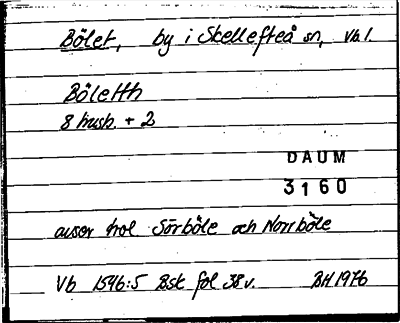 Bölet, by i Skellefteå sn, Vb.l.
Böletth
8 hush. + 2
DAUM
3160
avser trol Sörböle och Norrböle
Vb 1546:5 Bsk fol 38 v. BH 1976